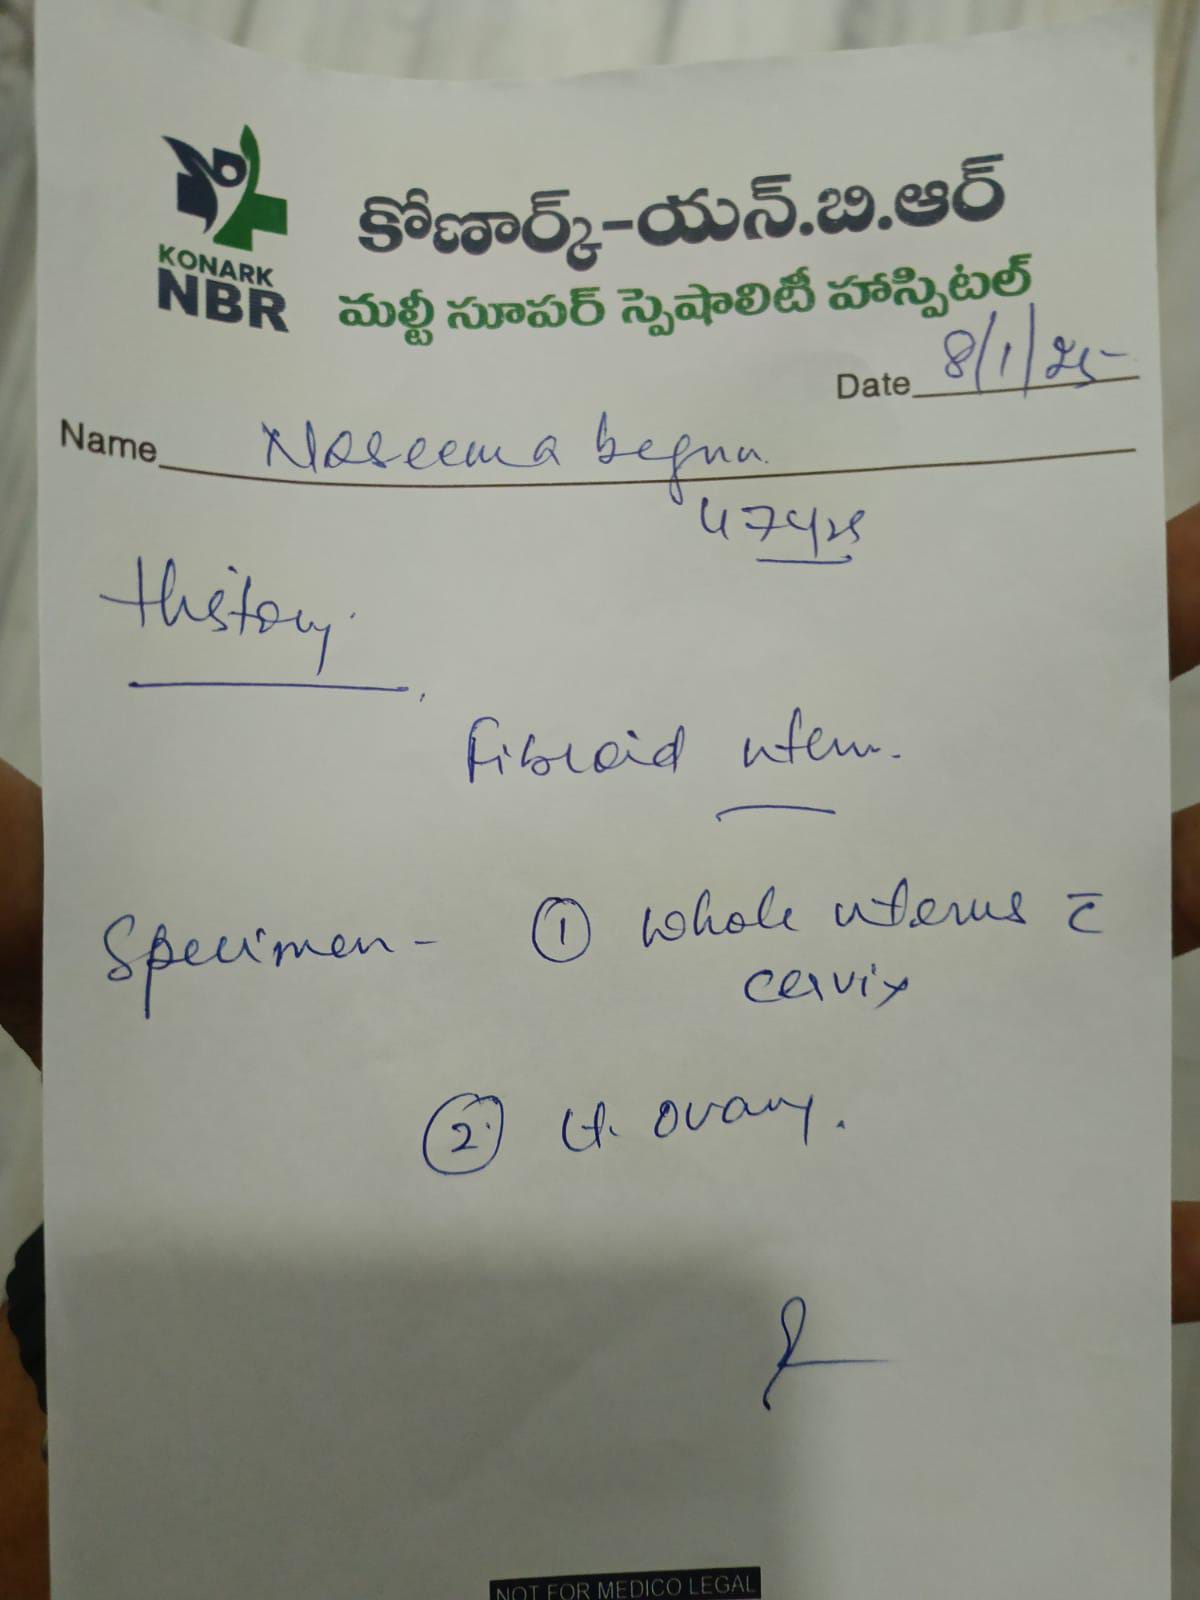 KONARK
NBR
కోణార్క్-యన్.బి.ఆర్
మల్టీ సూపర్ స్పెషాలిటీ హాస్పిటల్
Date 8/1/25
Name Naseema begum
47yrs
History.
Fibroid uterus.
Specimen - ① Whole uterus c̄
cervix
② Lt. ovary.
NOT FOR MEDICO LEGAL